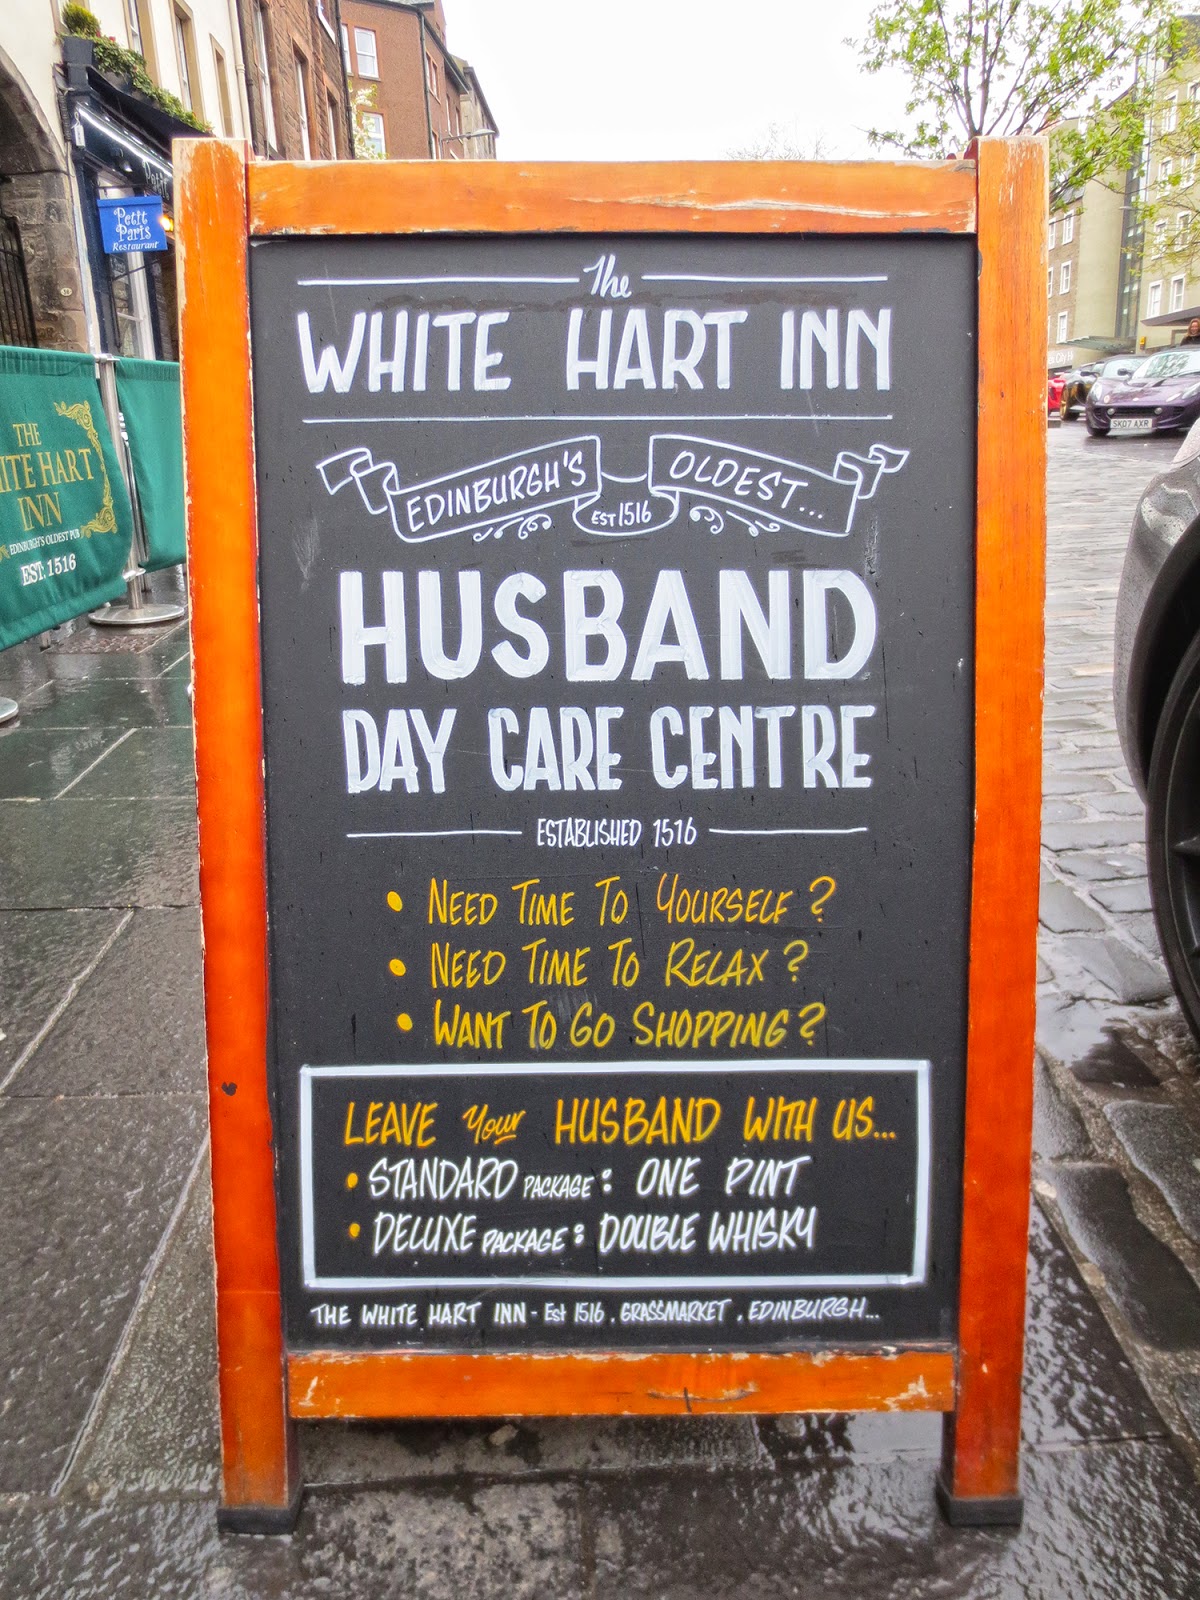 The
WHITE HART INN
EDINBURGH'S OLDEST...
EST 1516
HUSBAND
DAY CARE CENTRE
ESTABLISHED 1516
• NEED TIME TO YOURSELF?
• NEED TIME TO RELAX?
• WANT TO GO SHOPPING?
LEAVE Your HUSBAND WITH US...
• STANDARD PACKAGE: ONE PINT
• DELUXE PACKAGE: DOUBLE WHISKY
THE WHITE HART INN - Est 1516. GRASSMARKET. EDINBURGH...
Petit
Paris
Restaurant
THE
HART
INN
EDINBURGH'S OLDEST PUB
EST. 1516
SK07 AXR